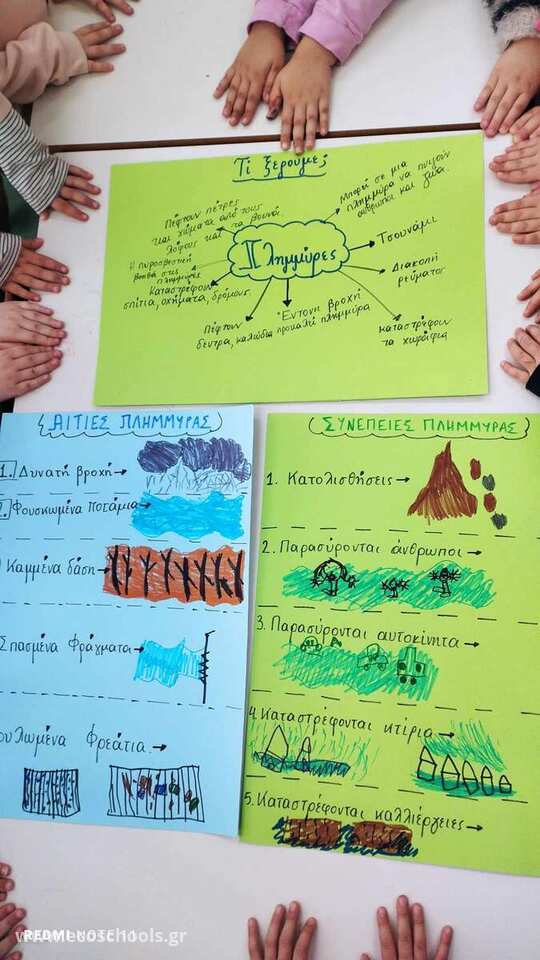 Τι ξερουμε;
Πέφτουν πέτρες
και χώματα από τους
λόφους και τα βουνά.
Μπορεί σε μια
πλημμύρα να πνιγούν
άνθρωποι και ζώα.
Η πυροσβεστική
βοηθά στις
πλημμύρες
Πλημμύρες
Τσουνάμι
Καταστρέφουν
σπίτια, οχήματα, δρόμους.
Διακοπή
ρεύματος
Πέφτουν
δέντρα, καλώδια
Έντονη βροχή
προκαλεί πλημμύρα
καταστρέφουν
τα χωράφια
ΑΙΤΙΕΣ ΠΛΗΜΜΥΡΑΣ
1. Δυνατή βροχή
2. Φουσκωμένα ποτάμια
Καμμένα δάση
Σπασμένα φράγματα
ουλωμένα φρεάτια.
ΣΥΝΕΠΕΙΕΣ ΠΛΗΜΜΥΡΑΣ
1. Κατολισθήσεις
2. Παρασύρονται άνθρωποι
3. Παρασύρονται αυτοκίνητα
4. Καταστρέφονται κτίρια
5. Καταστρέφονται καλλιέργειες
REDMI NOTE 11
www.ecoschools.gr